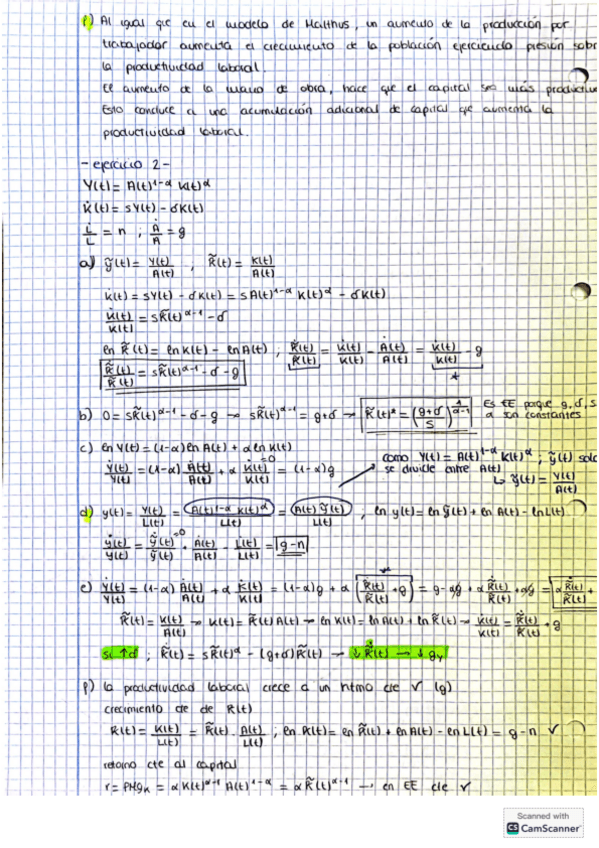 f) Al igual que en el modelo de Malthus, un aumento de la producción por
trabajador aumenta el crecimiento de la población ejerciendo presión sobr
la productividad laboral.
El aumento de la mano de obra, hace que el capital sea más productivo
Esto conduce a una acumulación adicional de capital que aumenta la
productividad laboral.
- ejercicio 2 -
Y(t) = A(t)^{1-α} K(t)^α
K̇(t) = sY(t) - δK(t)
L̇/L = n ; Ȧ/A = g
a) ỹ(t) = Y(t)/A(t) , k̃(t) = K(t)/A(t)
K̇(t) = sY(t) - δK(t) = sA(t)^{1-α} K(t)^α - δK(t)
K̇(t)/K(t) = sk̃(t)^{α-1} - δ
ln k̃(t) = ln K(t) - ln A(t) ; k̃̇(t)/k̃(t) = K̇(t)/K(t) - Ȧ(t)/A(t) = K̇(t)/K(t) - g
*
k̃̇(t)/k̃(t) = sk̃(t)^{α-1} - δ - g
b) 0 = sk̃(t)^{α-1} - δ - g → sk̃(t)^{α-1} = g+δ → k̃(t)* = ((g+δ)/s)^{1/(α-1)}
Es EE porque g, δ, s
α son constantes
c) ln Y(t) = (1-α) ln A(t) + α ln K(t)
Ẏ(t)/Y(t) = (1-α) Ȧ(t)/A(t) + α K̇(t)/K(t) = (1-α)g
=0
como Y(t) = A(t)^{1-α} K(t)^α ; ỹ(t) solo
se divide entre A(t)
↳ ỹ(t) = Y(t)/A(t)
d) y(t) = Y(t)/L(t) = A(t)^{1-α} K(t)^α/L(t) = A(t) ỹ(t)/L(t) ; ln y(t) = ln ỹ(t) + ln A(t) - ln L(t)
ẏ(t)/y(t) = ỹ̇(t)/ỹ(t) + Ȧ(t)/A(t) - L̇(t)/L(t) = g-n
=0
e) Ẏ(t)/Y(t) = (1-α) Ȧ(t)/A(t) + α K̇(t)/K(t) = (1-α)g + α (k̃̇(t)/k̃(t) + g) = g - αg + α k̃̇(t)/k̃(t) + αg = α k̃̇(t)/k̃(t) +
*
k̃(t) = K(t)/A(t) → K(t) = k̃(t) A(t) → ln K(t) = ln A(t) + ln k̃(t) → K̇(t)/K(t) = k̃̇(t)/k̃(t) + g
si ↑δ ; k̃̇(t) = sk̃(t)^α - (g+δ)k̃(t) → ↓k̃̇(t) → ↓g_Y
f) la productividad laboral crece a un ritmo cte √ (g)
crecimiento de de k(t)
k(t) = K(t)/L(t) = k̃(t) · A(t)/L(t) ; ln k(t) = ln k̃(t) + ln A(t) - ln L(t) = g-n √
retorno cte al capital
r = PMg_K = αK(t)^{α-1} A(t)^{1-α} = αk̃(t)^{α-1} → en EE cte √
Scanned with
CS CamScanner